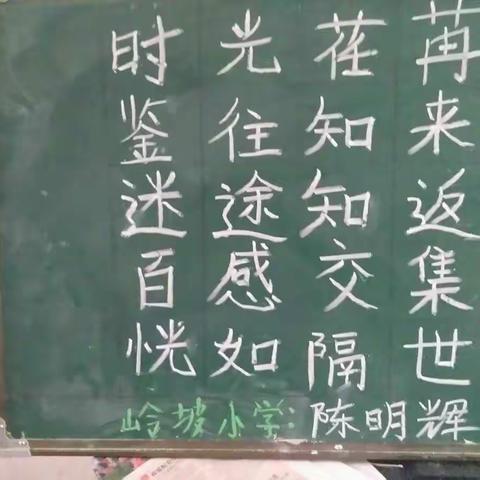 时光荏苒
鉴往知来
迷途知返
百感交集
恍如隔世
岭坡小学：陈明辉